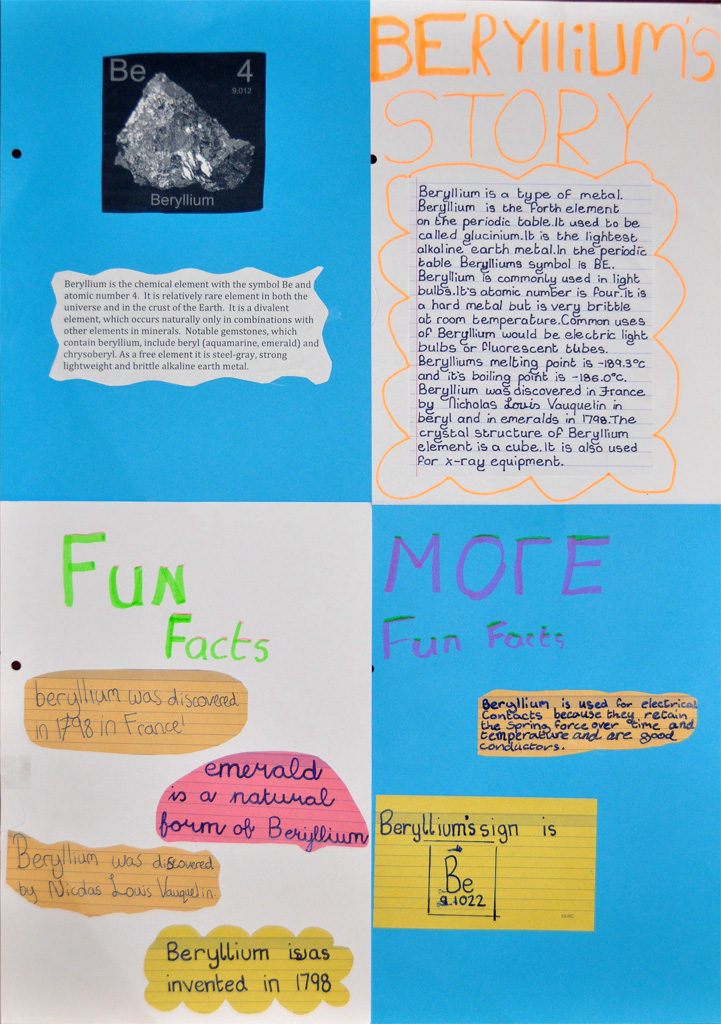 Be 4
9.012
Beryllium
Beryllium is the chemical element with the symbol Be and
atomic number 4. It is relatively rare element in both the
universe and in the crust of the Earth. It is a divalent
element, which occurs naturally only in combinations with
other elements in minerals. Notable gemstones, which
contain beryllium, include beryl (aquamarine, emerald) and
chrysoberyl. As a free element it is steel-gray, strong
lightweight and brittle alkaline earth metal.
BERYllIUM'S
STORY
Beryllium is a type of metal.
Beryllium is the forth element
on the periodic table.It used to be
called glucinium.It is the lightest
alkaline earth metal.In the periodic
table Berylliums symbol is BE.
Beryllium is commonly used in light
bulbs.It's atomic number is four.It is
a hard metal but is very brittle
at room temperature.Common uses
of Beryllium would be electric light
bulbs or fluorescent tubes.
Berylliums melting point is -189.3°C
and it's boiling point is -186.0°C.
Beryllium was discovered in France
by Nicholas Louis Vauquelin in
beryl and in emeralds in 1798.The
crystal structure of Beryllium
element is a cube.It is also used
for x-ray equipment.
Fun
Facts
beryllium was discovered
in 1798 in France!
emerald
is a natural
form of Beryllium
Beryllium was discovered
by Nicolas Louis Vauquelin.
Beryllium was
invented in 1798
MORE
Fun Facts
Beryllium is used for electrical
contacts because they retain
the spring force over time and
temperature and are good
conductors.
Beryllium's sign is
Be
9.1022